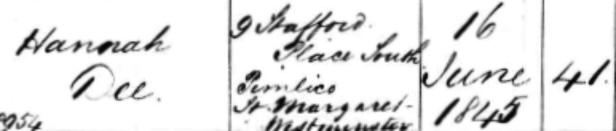 Hannah
Dee.
8954
9 Stafford
Place South
Pimlico
St. Margaret-
Westminster
16
June
1845
41.